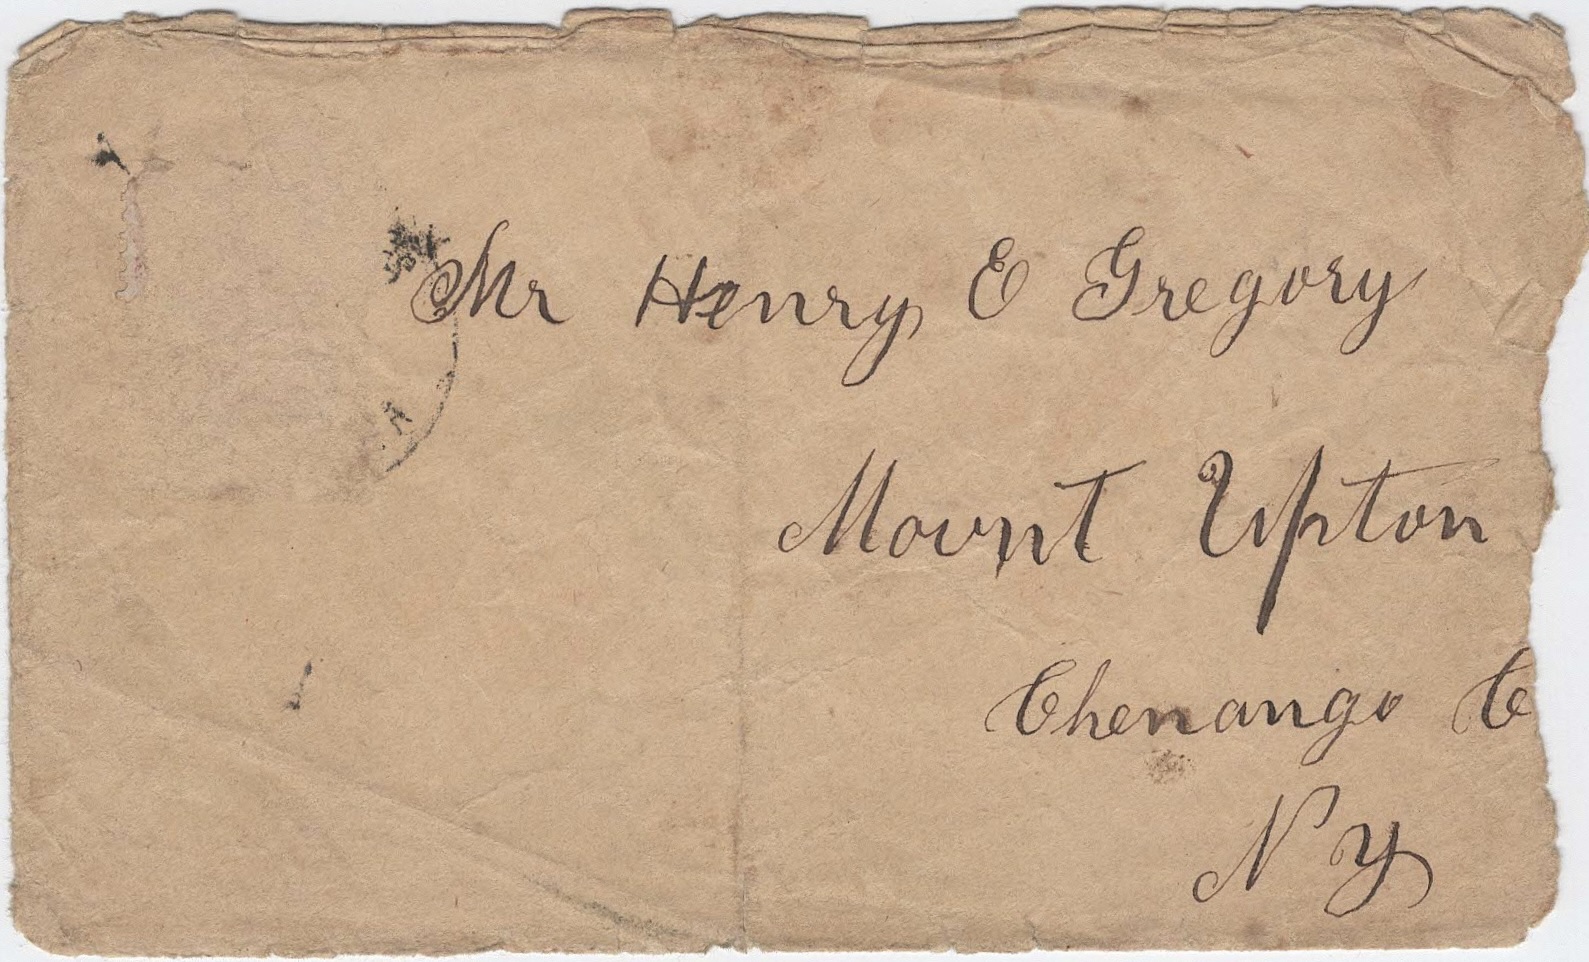 Mr Henry E Gregory
.A
Mount Upton
Chenango C
N Y